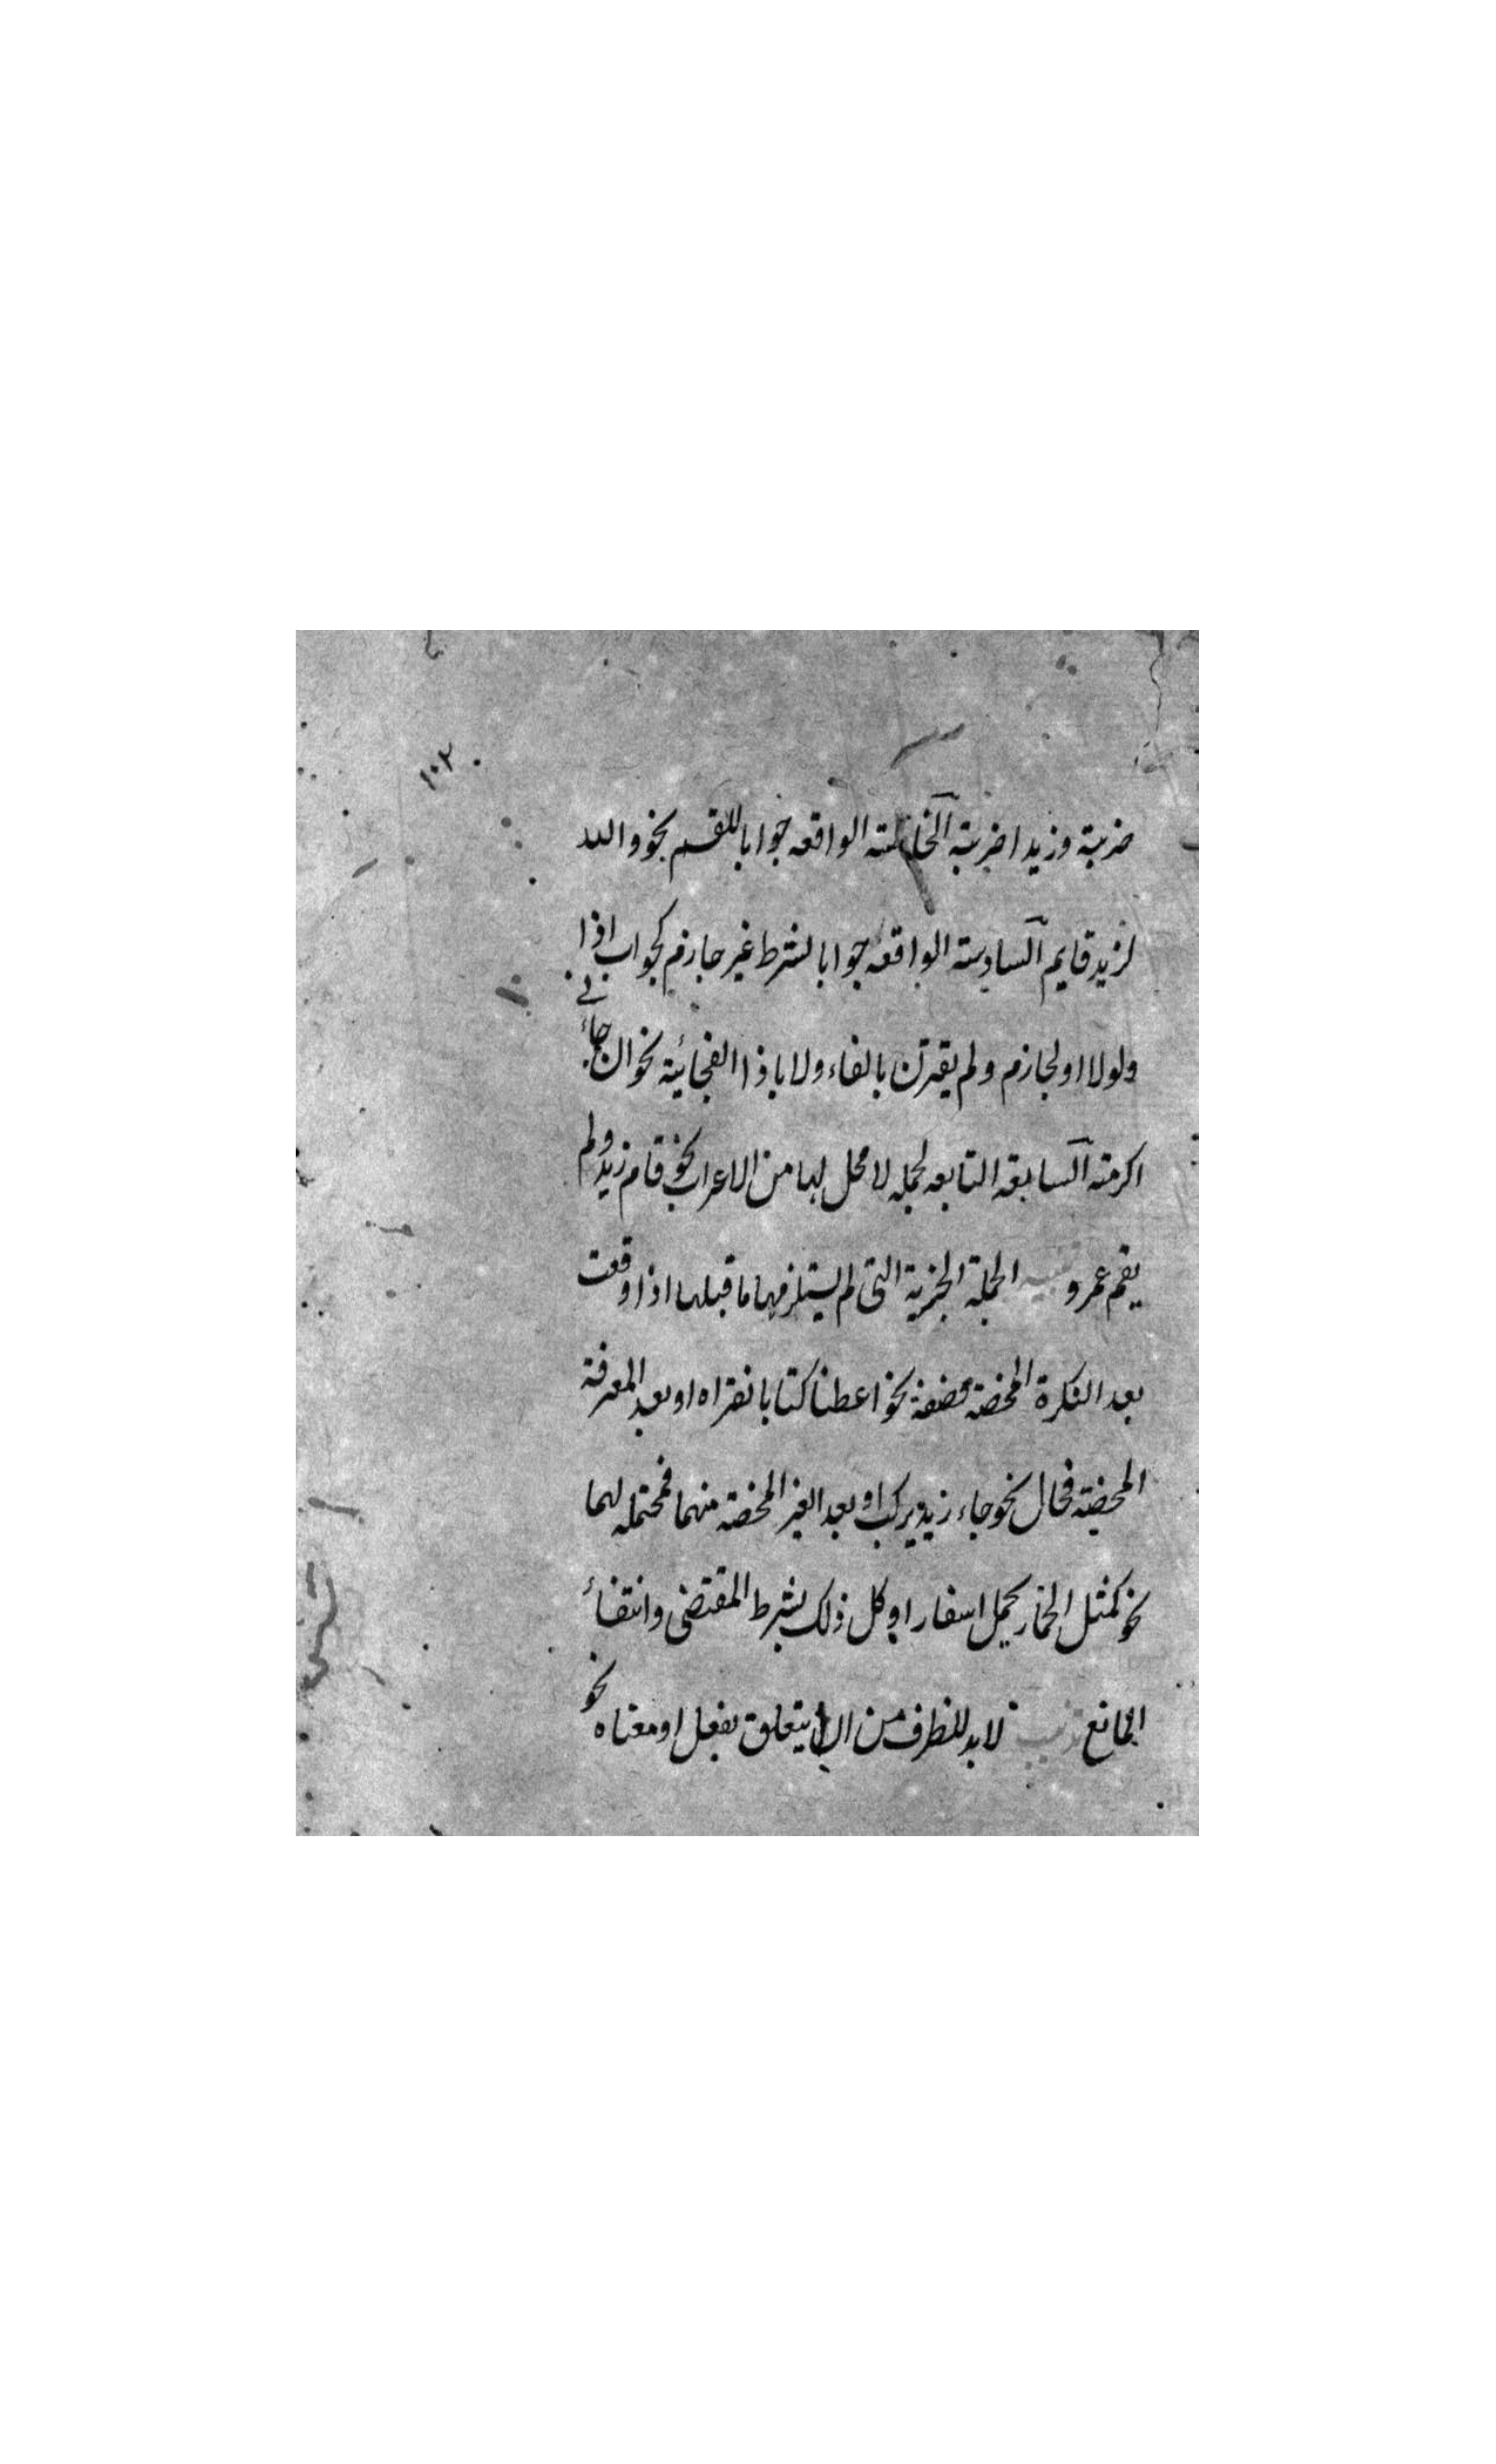 ١٠٢
ضربته وزيدا ضربته الخامسة الواقعه جوابا للقسم نحو والله
لزيد قايم السادسة الواقعه جوابا لشرط غير جازم كجواب اذا
ولولا او لجازم ولم يقترن بالفاء ولا باذا الفجائية نحو ان جاءني
اكرمته السابعة التابعه لجمله لا محل لها من الاعراب نحو قام زيد ولم
يقم عمرو تنبيه الجملة الخبرية التي لم يستلزمها ما قبلها اذا وقعت
بعد النكرة المحضة فصفة نحو اعطنا كتابا نقراه او بعد المعرفة
المحضة فحال نحو جاء زيد يركب او بعد الغير المحضة منهما فمحتمله لهما
نحو كمثل الحمار يحمل اسفارا وكل ذلك بشرط المقتضى وانتفاء
المانع لابد للظرف من ان يتعلق بفعل او معناه نحو